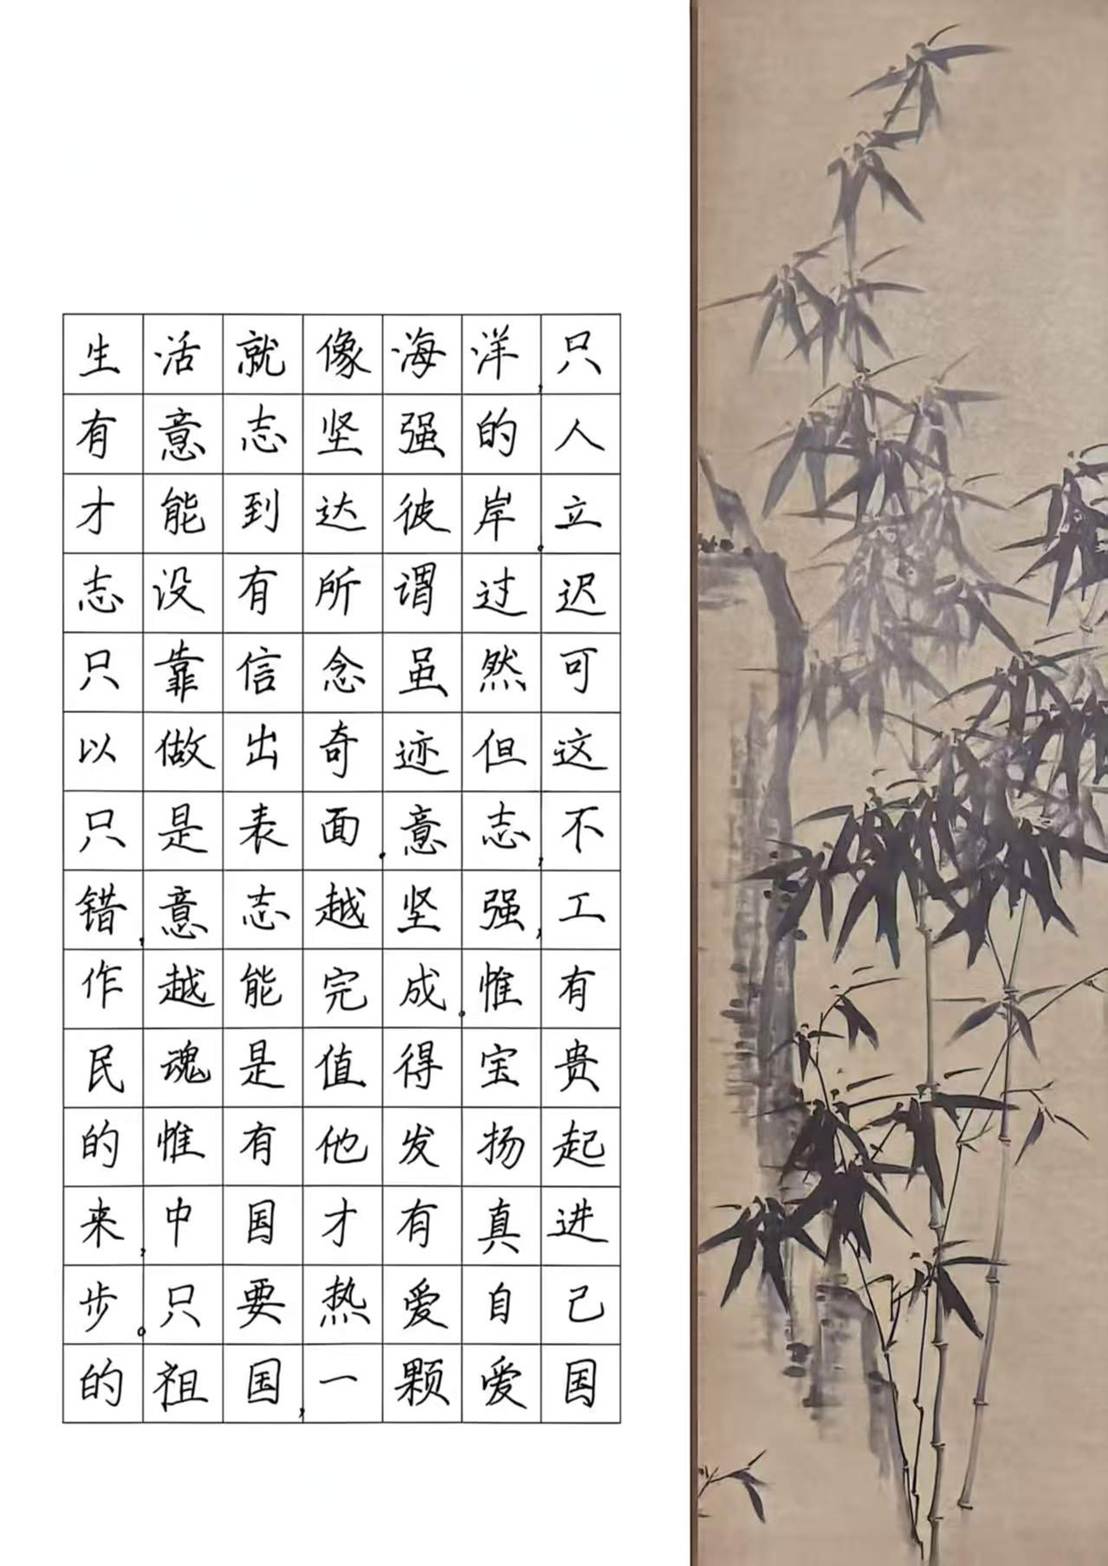 生活就像海洋,只
有意志坚强的人
才能到达彼岸。立
志没有所谓过迟
只靠信念虽然可
以做出奇迹但这
只是表面.意志,不
错,意志越坚强,工
作越能完成。惟有
民魂是值得宝贵
的惟有他发扬起
来,中国才有真进
步。只要热爱自己
的祖国,一颗爱国